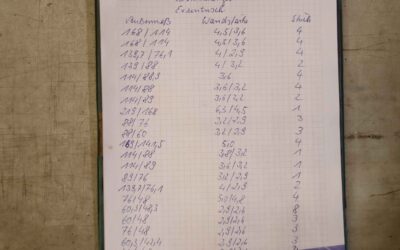 Exzentrisch
Wandstärke Stück
168/114 4,5/3,6 4
168/114 4,5/3,6 4
139,7/76,1 4/2,9 4
139/88 4/3,2 2
114/88,9 3,6 4
114/88 3,6/3,2 4
114/89 3,6/3,2 2
219/168 6,3/4,5 1
88/76 3,2/2,9 3
88/60 3,2/2,9 3
5,0 4
114/88 3,8/3,2 1
114/89 3,6/3,2 1
89/76 3,2/2,9 1
139,7/76,1 4/2,9 2
76/48 4
60,3/48,3 2,9/2,6 8
60/48 2,9/2,6 3
76/48 2,9/2,6 3
60,3/42,4 2,9/2,6 3